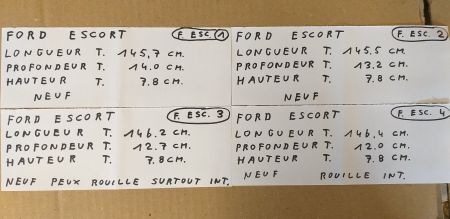 FORD ESCORT F. ESC. 1
LONGUEUR T. 145,7 CM.
PROFONDEUR T. 14.0 CM.
HAUTEUR T. 7.8 CM.
NEUF
FORD ESCORT F. ESC. 2
LONGUEUR T. 145.5 CM.
PROFONDEUR T. 13.2 CM.
HAUTEUR T. 7.8 CM.
NEUF
FORD ESCORT F. ESC. 3
LONGUEUR T. 146.2 CM.
PROFONDEUR T. 12.7 CM.
HAUTEUR T. 7.8 CM.
NEUF PEUX ROUILLE SURTOUT INT.
FORD ESCORT F. ESC. 4
LONGUEUR T. 146,4 CM.
PROFONDEUR T. 12.0 CM.
HAUTEUR T. 7.8 CM.
NEUF ROUILLE INT.